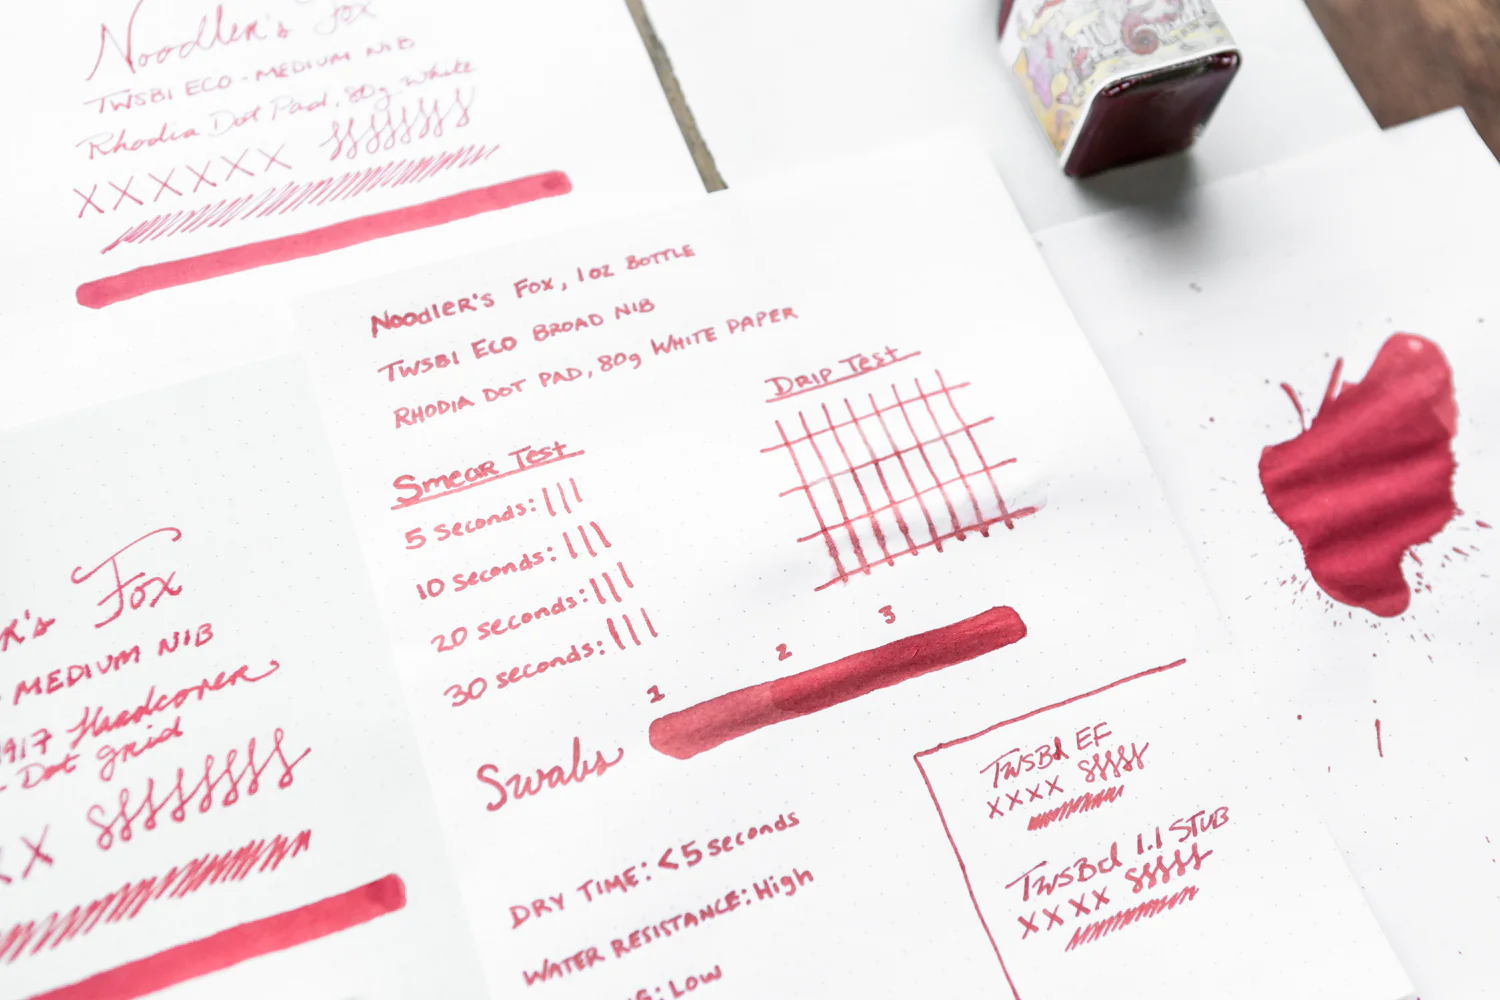 Noodler's Fox
TWSBI ECO - MEDIUM NIB
Rhodia Dot Pad, 80g white
XXXXXX
Noodler's Fox, 1oz Bottle
TWSBI Eco Broad Nib
Rhodia Dot Pad, 80g White Paper
Smear Test
5 seconds:
10 seconds:
20 seconds:
30 seconds:
Drip Test
1 2 3
Swabs
Dry Time: <5 seconds
Water Resistance: High
G: Low
TWSBI EF
XXXX
TWSBI 1.1 STUB
XXXX
r's Fox
MEDIUM NIB
1917 Headcorner
Dot grid
XX